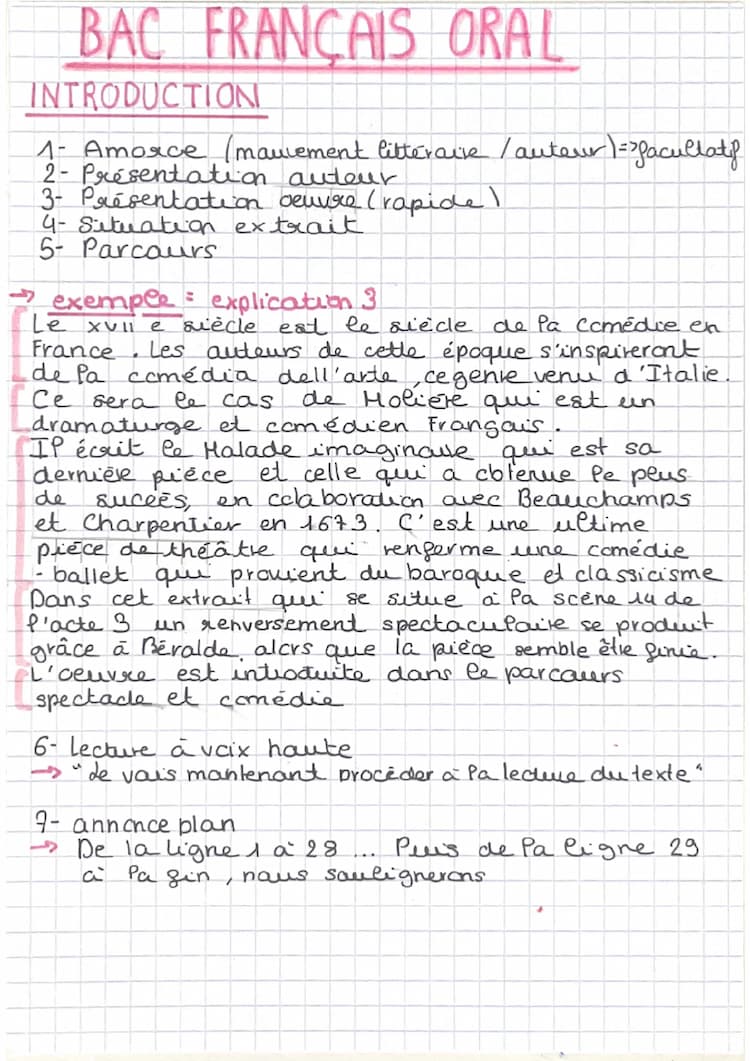 BAC FRANÇAIS ORAL
INTRODUCTION
1- Amorce (mouvement littéraire / auteur) => facultatif
2- Présentation auteur
3- Présentation oeuvre (rapide)
4- Situation extrait
5- Parcours
→ exemple : explication 3
Le XVII e siècle est le siècle de la comédie en
France. Les auteurs de cette époque s'inspireront
de la comédia dell'arte, ce genre venu d'Italie.
Ce sera le cas de Molière qui est un
dramaturge et comédien Français.
Il écrit le Malade imaginaire qui est sa
dernière pièce et celle qui a obtenue le plus
de succès, en colaboration avec Beauchamps
et Charpentier en 1673. C'est une ultime
pièce de théâtre qui renferme une comédie
- ballet qui provient du baroque et classicisme
Dans cet extrait qui se situe à la scène 14 de
l'acte 3 un renversement spectaculaire se produit
grâce à Béralde, alors que la pièce semble être finie.
L'oeuvre est introduite dans le parcours
spectacle et comédie
6- lecture à voix haute
→ "Je vais mantenant procéder à la lecture du texte"
7- annonce plan
→ De la ligne 1 à 28 ... Puis de la ligne 29
à la fin, nous soulignerons